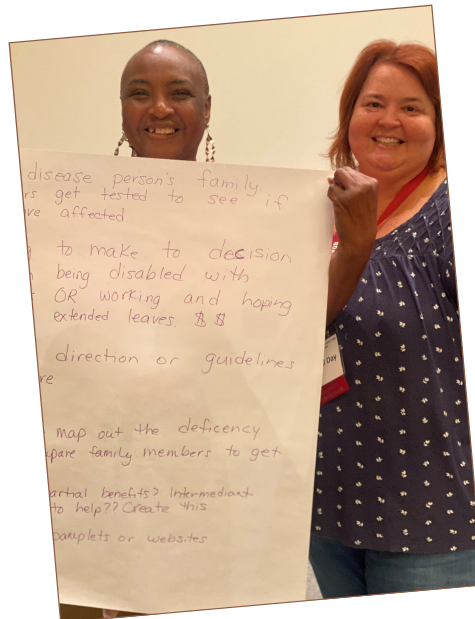 disease person's family
rs get tested to see if
ve affected
to make to decision
being disabled with
OR working and hoping
extended leaves. $ $
direction or guidelines
re
map out the deficency
pare family members to get
artial benefits? Intermediant
to help?? Create this
pamplets or websites
Day